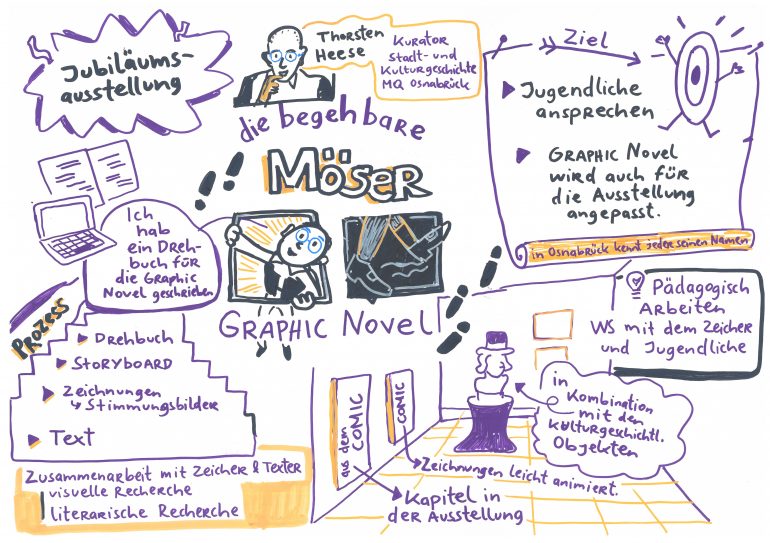 Jubiläums-
ausstellung
Thorsten
Heese
Kurator
Stadt- und
Kulturgeschichte
MQ Osnabrück
die begehbare
Möser
GRAPHIC Novel
Ziel
Jugendliche
ansprechen
GRAPHIC Novel
wird auch für
die Ausstellung
angepasst.
in Osnabrück kennt jeder seinen Namen
Ich
hab
ein Dreh-
buch für
die Graphic
Novel geschrieben
Prozess
Drehbuch
STORYBOARD
Zeichnungen
↳ Stimmungsbilder
Text
Zusammenarbeit mit Zeicher & Texter
visuelle Recherche
literarische Recherche
Pädagogisch
Arbeiten
WS mit dem Zeicher
und Jugendliche
aus dem
COMIC
COMIC
in
Kombination
mit den
kulturgeschichtl.
Objekten
Zeichnungen leicht animiert.
Kapitel in
der Ausstellung